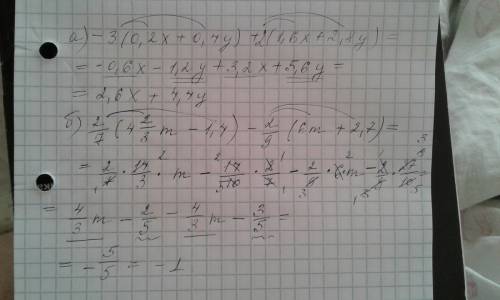 а) -3(0,2x + 0,4y) + 2(1,6x + 2,8y) =
= -0,6x - 1,2y + 3,2x + 5,6y =
= 2,6x + 4,4y
б) 2/7 (4 2/3 m - 1,4) - 2/9 (6m + 2,7) =
= 2/7 · 14/3 m - 14/10 · 2/7 - 2/9 · 6m - 2/9 · 27/10 =
= 4/3 m - 2/5 - 4/3 m - 3/5 =
= - 5/5 = -1